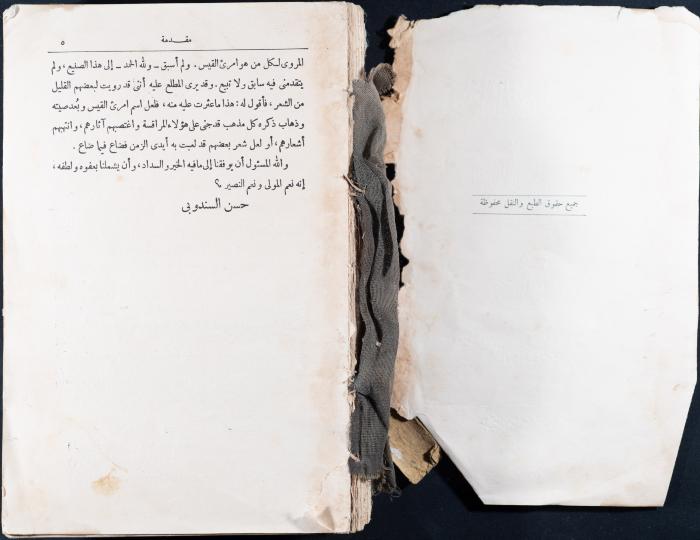 جميع حقوق الطبع والنقل محفوظة
مقدمة ٥
المروى لكل من هو امرئ القيس. ولم أسبق – ولله الحمد – إلى هذا الصنيع، ولم
يتقدمنى فيه سابق ولا تبع. وقد يرى المطلع عليه أننى قد رويت لبعضهم القليل
من الشعر، فأقول له: هذا ما عثرت عليه منه، فلعل اسم امرئ القيس وبُعد صيته
وذهاب ذكره كل مذهب قد جنى على هؤلاء المراقسة واغتصبهم آثارهم، وانتهبهم
أشعارهم، أو لعل شعر بعضهم قد لعبت به أيدى الزمن فضاع فيما ضاع.
والله المسئول أن يوفقنا إلى ما فيه الخير والسداد، وأن يشملنا بعفوه ولطفه،
إنه نعم المولى ونعم النصير ؟
حسن السندوبى